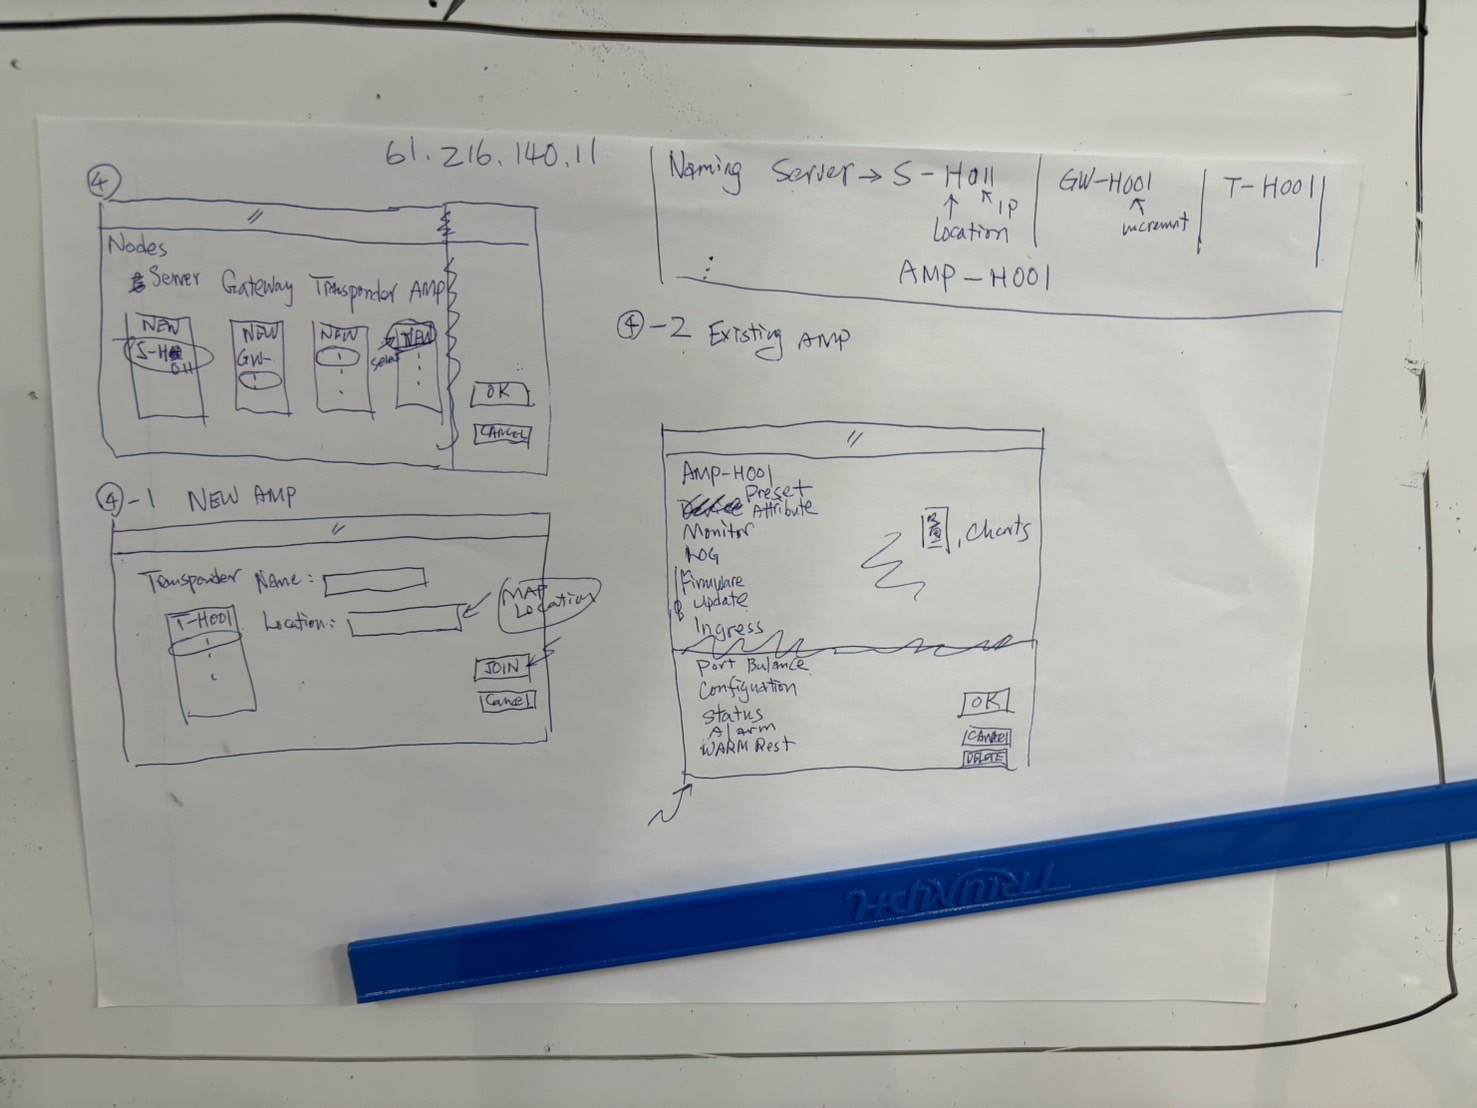 61.216.140.11
Naming Server → S-H011
IP
Location
GW-H001
increment
T-H001
AMP-H001
④
Nodes
Server Gateway Transponder AMP
NEW
S-H
011
NEW
GW-
NEW
NEW
select
OK
CANCEL
④-1 NEW AMP
Transponder Name:
T-H001
Location:
MAP
LOCation
JOIN
Cancel
④-2 Existing AMP
AMP-H001
Preset
Attribute
Monitor
LOG
Firmware
update
Ingress
Port Balance
Configuration
Status
Alarm
WARM Rest
, Charts
OK
CANCEL
DELETE
TRIUMPH